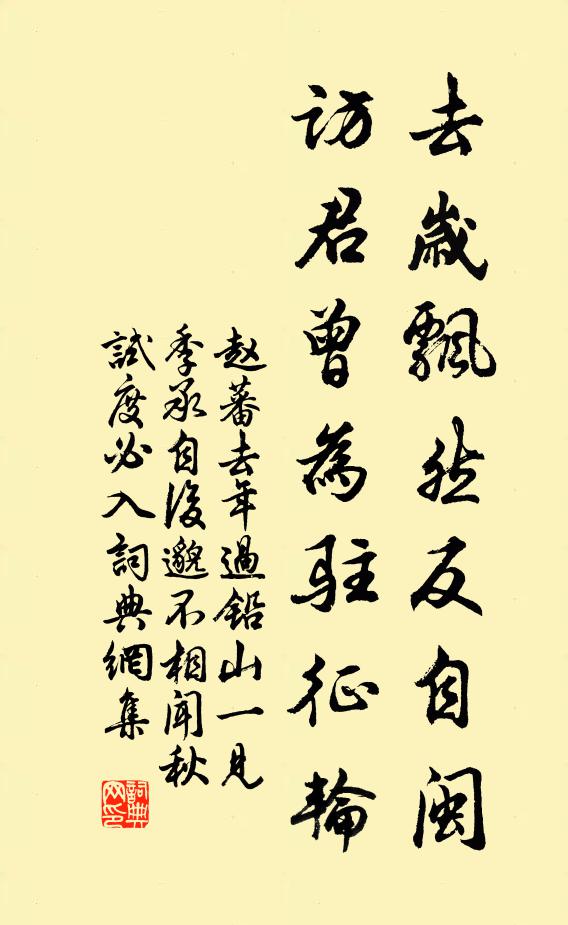 去歲飄然反自閩
訪君曾為駐征輪
赵蕃去年過鉛山一見
季承自後邈不相聞秋
試度必入詞典網集
詞典
网印